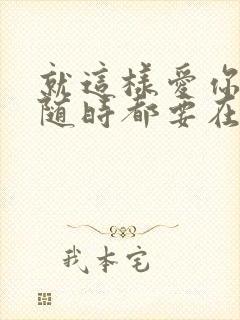 就這樣愛你
隨時都要在
我本宅